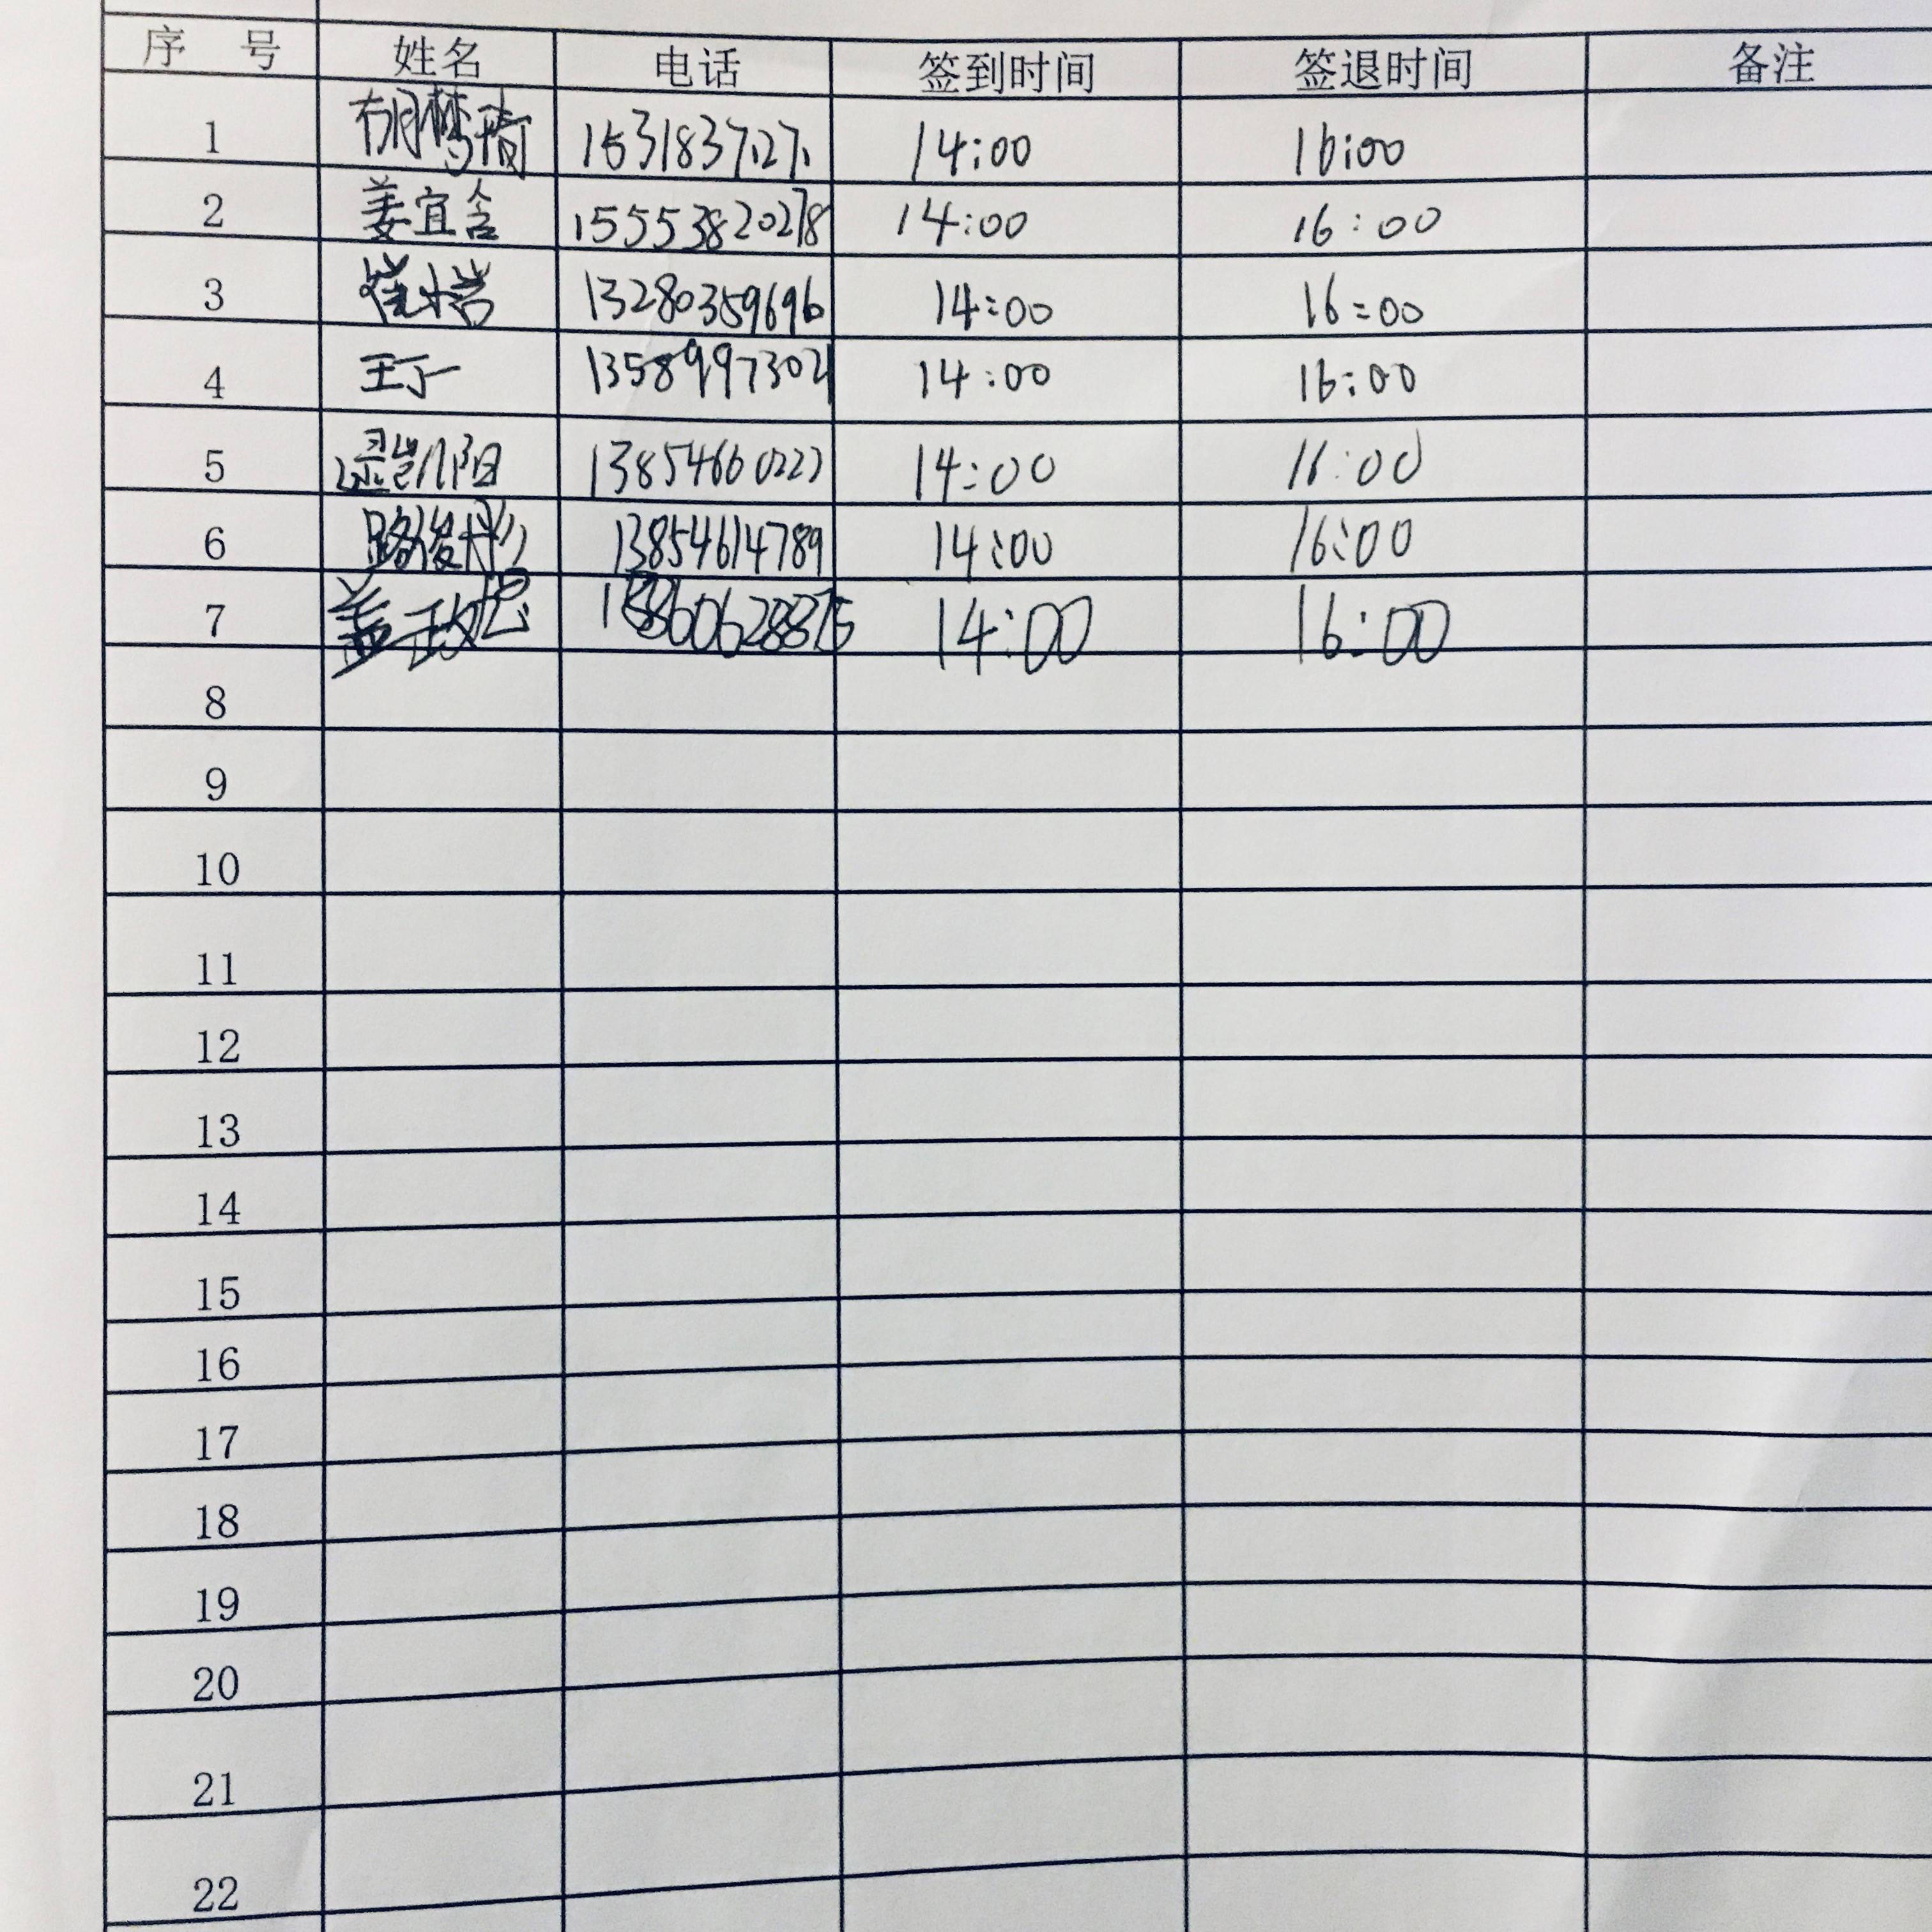 序 号 姓名 电话 签到时间 签退时间 备注
1 胡梦晴 14:00 16:00
2 姜宜含 15553820278 14:00 16:00
3 崔峼 13280359696 14:00 16:00
4 王丁一 13589997302 14:00 16:00
5 逯凯阳 13854660222 14:00 16:00
6 路俊彬 13854614789 14:00 16:00
7 盖政 14:00 16:00
8
9
10
11
12
13
14
15
16
17
18
19
20
21
22